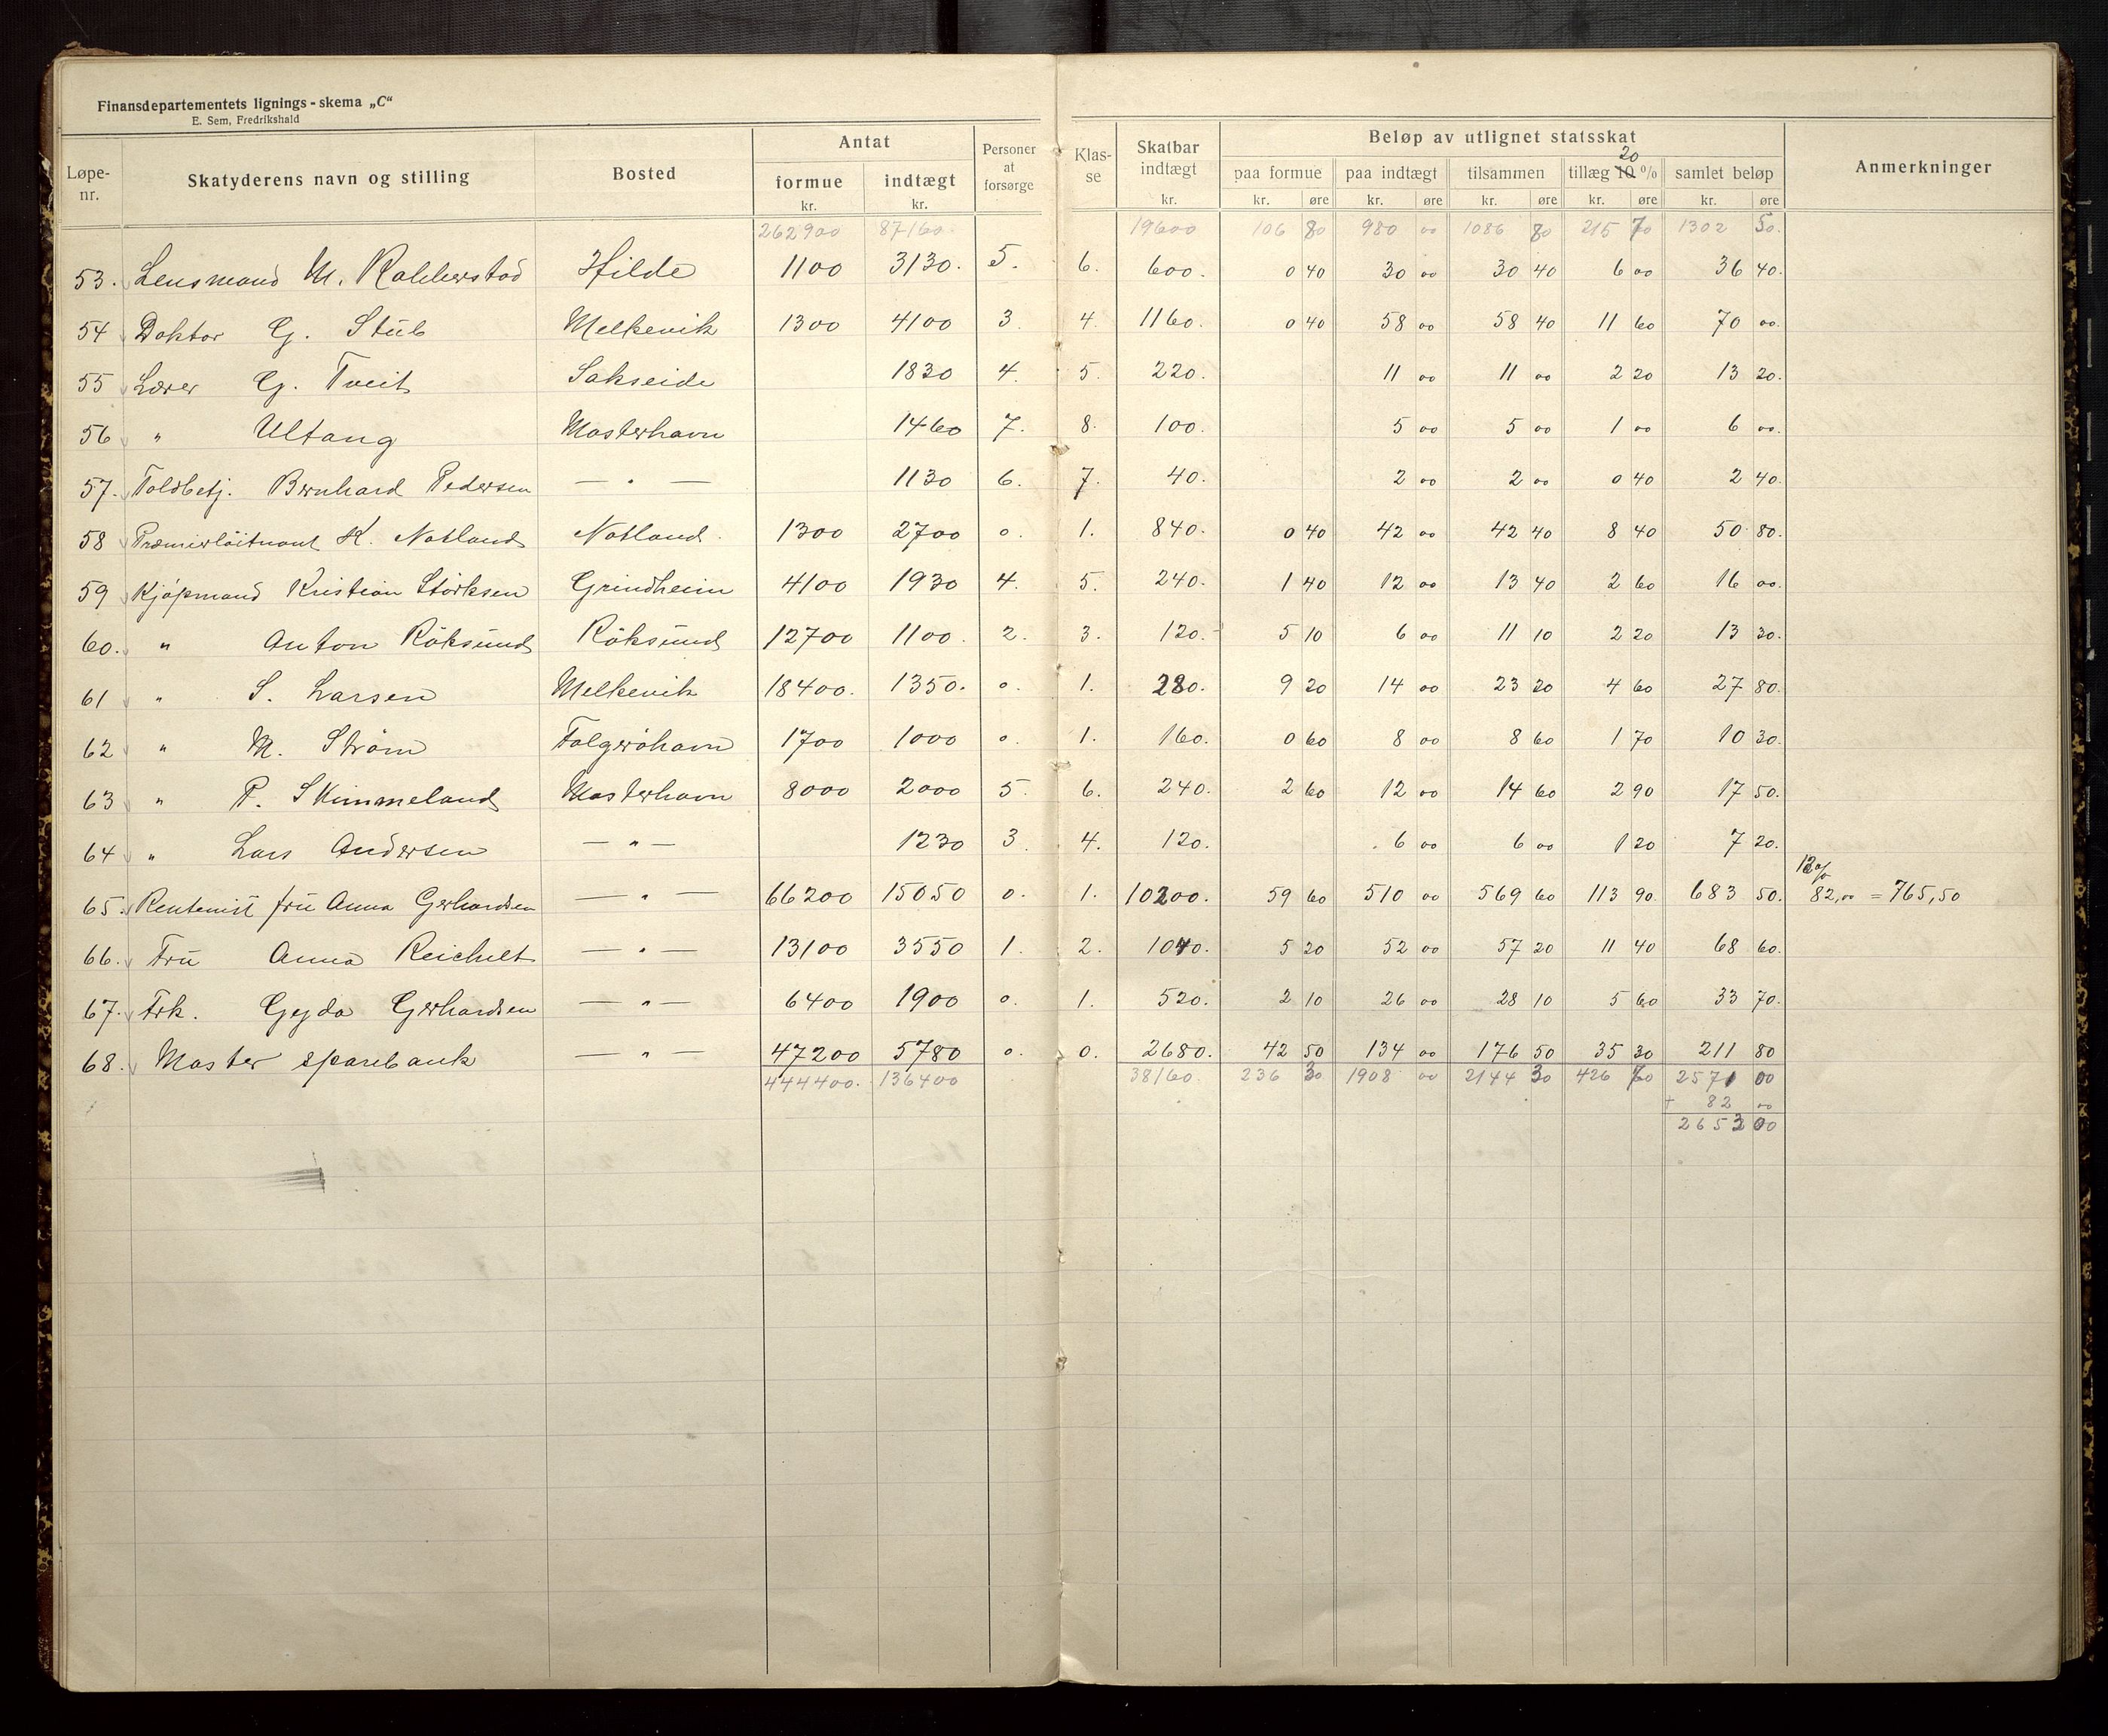 Finansdepartementets lignings-skema „C“
E. Sem, Fredrikshald
Løpe-nr. Skatyderens navn og stilling Bosted Antat formue kr. indtægt kr. Personer at forsørge Klas-se Skatbar indtægt kr. Beløp av utlignet statsskat paa formue kr. øre paa indtægt kr. øre tilsammen kr. øre tillæg 20 10 % kr. øre samlet beløp kr. øre Anmerkninger
262900 87160. 19600 106 80 980 00 1086 80 215 70 1302 50.
53. Lensmand M. Hilde 1100 3130. 5. 6. 600. 0 40 30 00 30 40 6 00 36 40.
54 Doktor G. Stub Melkevik 1300 4100 3. 4. 1160. 0 40 58 00 58 40 11 60 70 00.
55 Lærer G. Tveit Sakseide 1830 4. 5. 220. 11 00 11 00 2 20 13 20.
56 " Ultang Mosterhavn 1460 7. 8. 100. 5 00 5 00 1 00 6 00.
57. Toldbetj. Bernhard Pedersen — " — 1130 6. 7. 40. 2 00 2 00 0 40 2 40.
58 Premierløitnant K. Notland Notland. 1300 2700 0. 1. 840. 0 40 42 00 42 40 8 40 50 80.
59 Kjøpmand Kristian Störksen Grindheim 4100 1930 4. 5. 240. 1 40 12 00 13 40 2 60 16 00.
60. " Anton Röksund Röksund 12700 1100. 2. 3. 120. 5 10 6 00 11 10 2 20 13 30.
61 " S. Larsen Melkevik 18400. 1350. 0. 1. 280. 9 20 14 00 23 20 4 60 27 80.
62 " M. Ström Folgeröhavn 1700 1000 0. 1. 160. 0 60 8 00 8 60 1 70 10 30.
63 " P. Skimmeland Mosterhavn 8000 2000 5. 6. 240. 2 60 12 00 14 60 2 90 17 50.
64 " Lars Andersen — " — 1230 3. 4. 120. 6 00 6 00 1 20 7 20.
65. Rentenist fru Anna Gerhardsen — " — 66200 15050 0. 1. 10200. 59 60 510 00 569 60 113 90 683 50. 12% 82,00 = 765,50
66. Fru Anna Reichelt — " — 13100 3550 1. 2. 1040. 5 20 52 00 57 20 11 40 68 60.
67. Frk. Gyda Gerhardsen — " — 6400 1900 0. 1. 520. 2 10 26 00 28 10 5 60 33 70.
68. Moster sparebank — " — 47200 5780 0. 0. 2680. 42 50 134 00 176 50 35 30 211 80
444400. 136400 38160. 236 30 1908 00 2144 30 426 70 2571 00
+ 82 00
2653 00